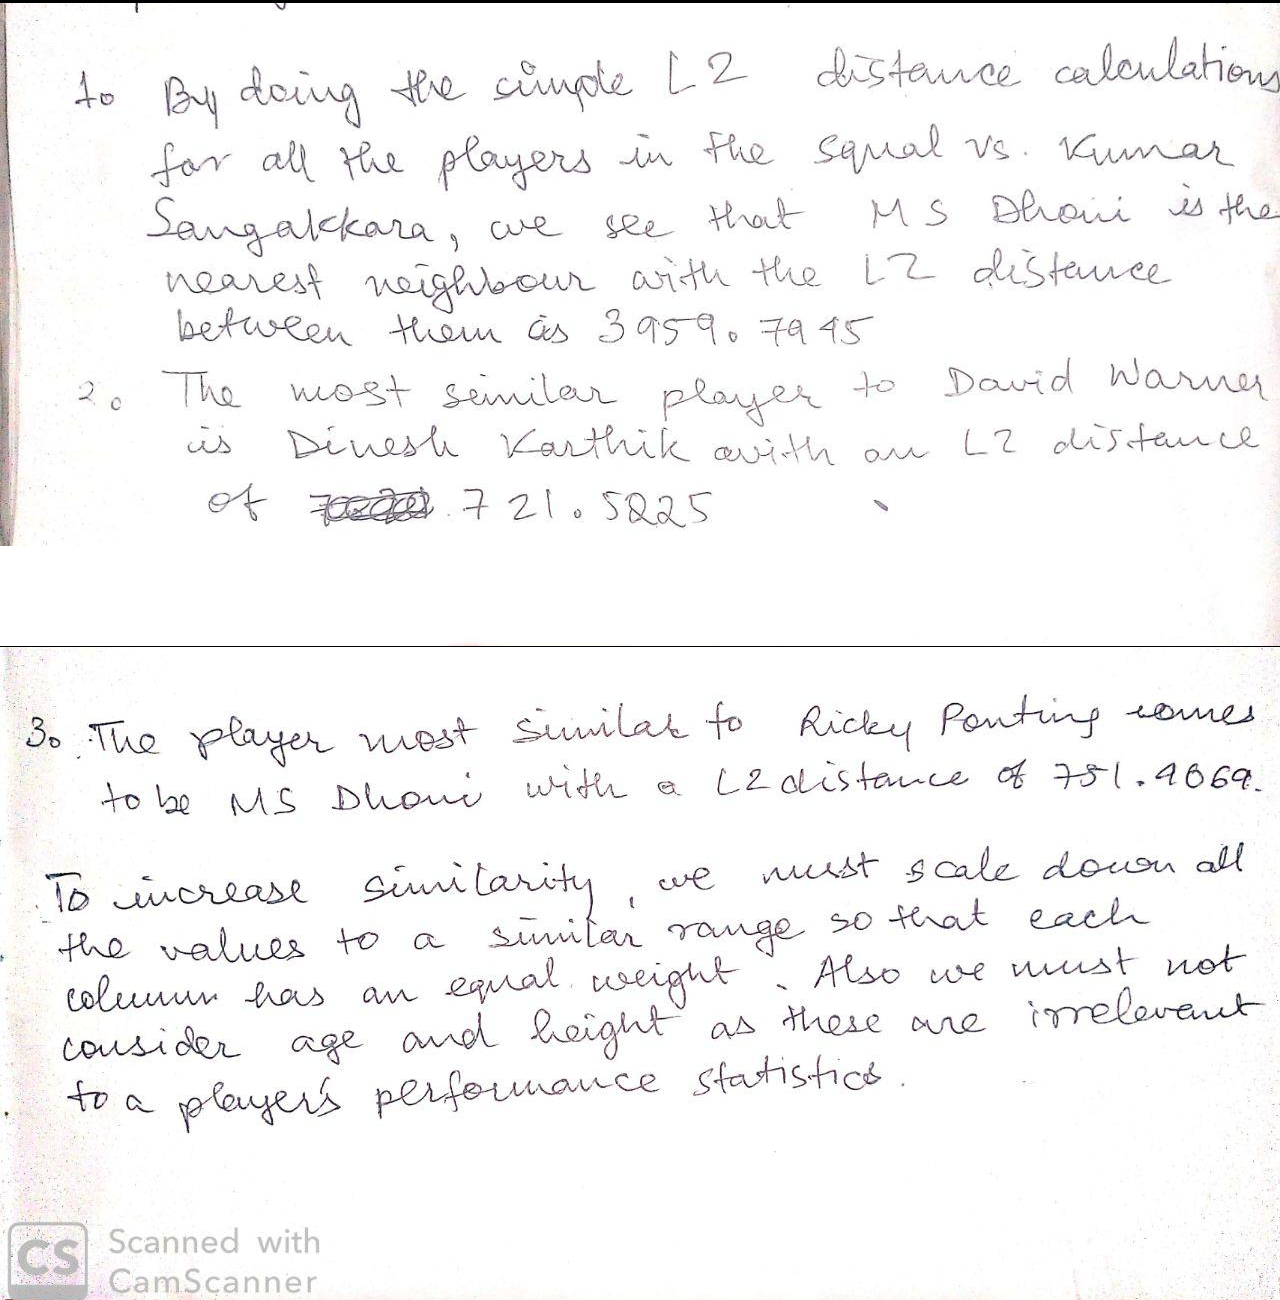 1. By doing the simple L2 distance calculations
for all the players in the squal vs. Kumar
Sangakkara, we see that MS Dhoni is the
nearest neighbour with the L2 distance
between them as 3959.7945
2. The most similar player to David Warner
is Dinesh Karthik with an L2 distance
of 721.5825
3. The player most similar to Ricky Ponting comes
to be MS Dhoni with a L2 distance of
To increase similarity, we must scale down all
the values to a similar range so that each
column has an equal weight. Also we must not
consider age and height as these are irrelevant
to a player's performance statistics.
CS Scanned with
CamScanner